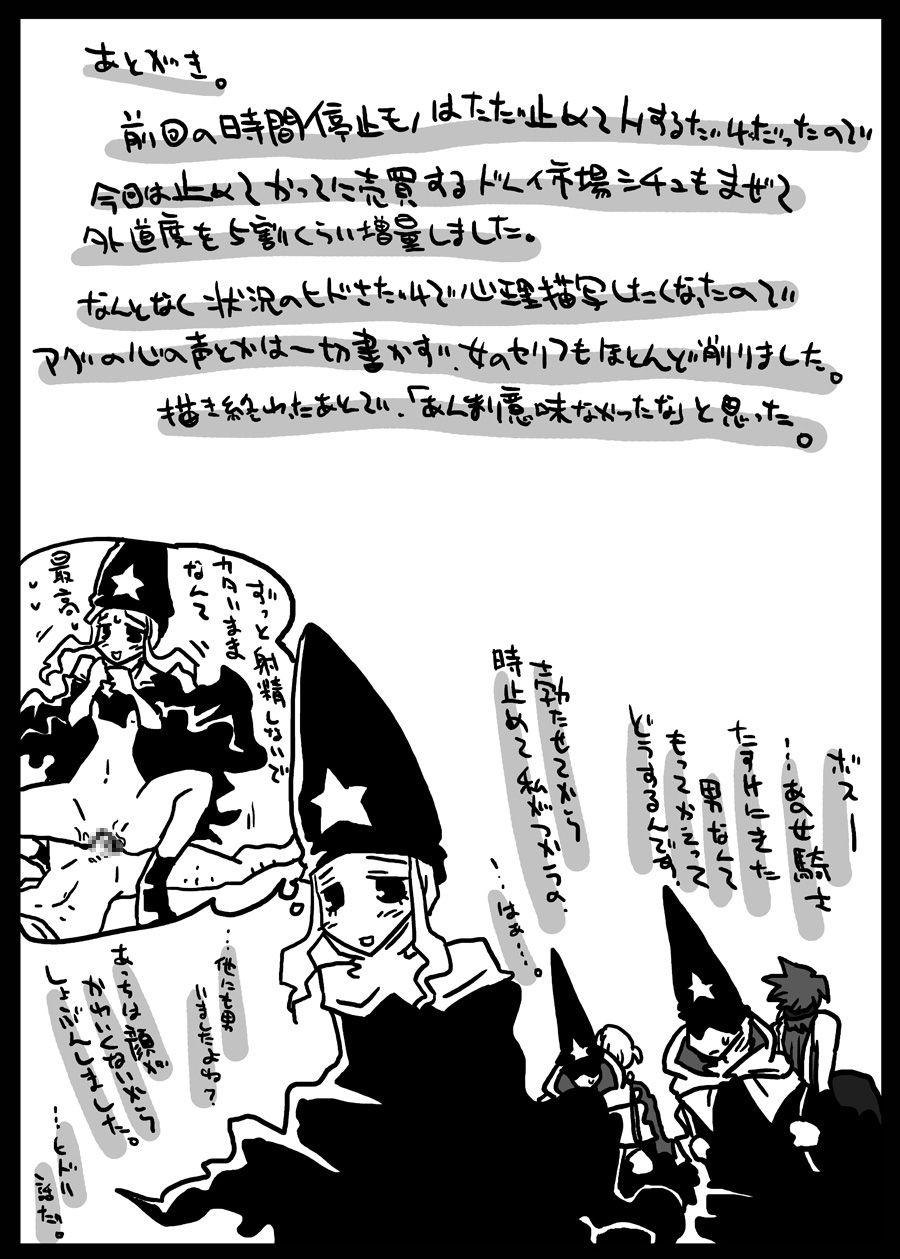 あとがき。
前回の時間停止モノはただ止めてHするだけだったので
今回は止めてかってに売買するドレイ市場シチュもまぜて
外道度を5割くらい増量しました。
なんとなく状況のヒドさだけで心理描写したくなったので
アヴの心の声とかは一切書かず、女のセリフもほとんど削りました。
描き終わったあとで、「あんま意味なかったな」と思った。
ボスー
…あの女騎士
たすけにきた
男なんて
もってかえって
どうするんです。
勃たせてから
時止めて私がつかうの。
…はぁ…。
ずっと射精しないで
カタいまま
なんて
最高
…他にも男
いましたよね?
あっちは顔が
かわいくないから
しょぶんしました。
…ヒドい
話だ。